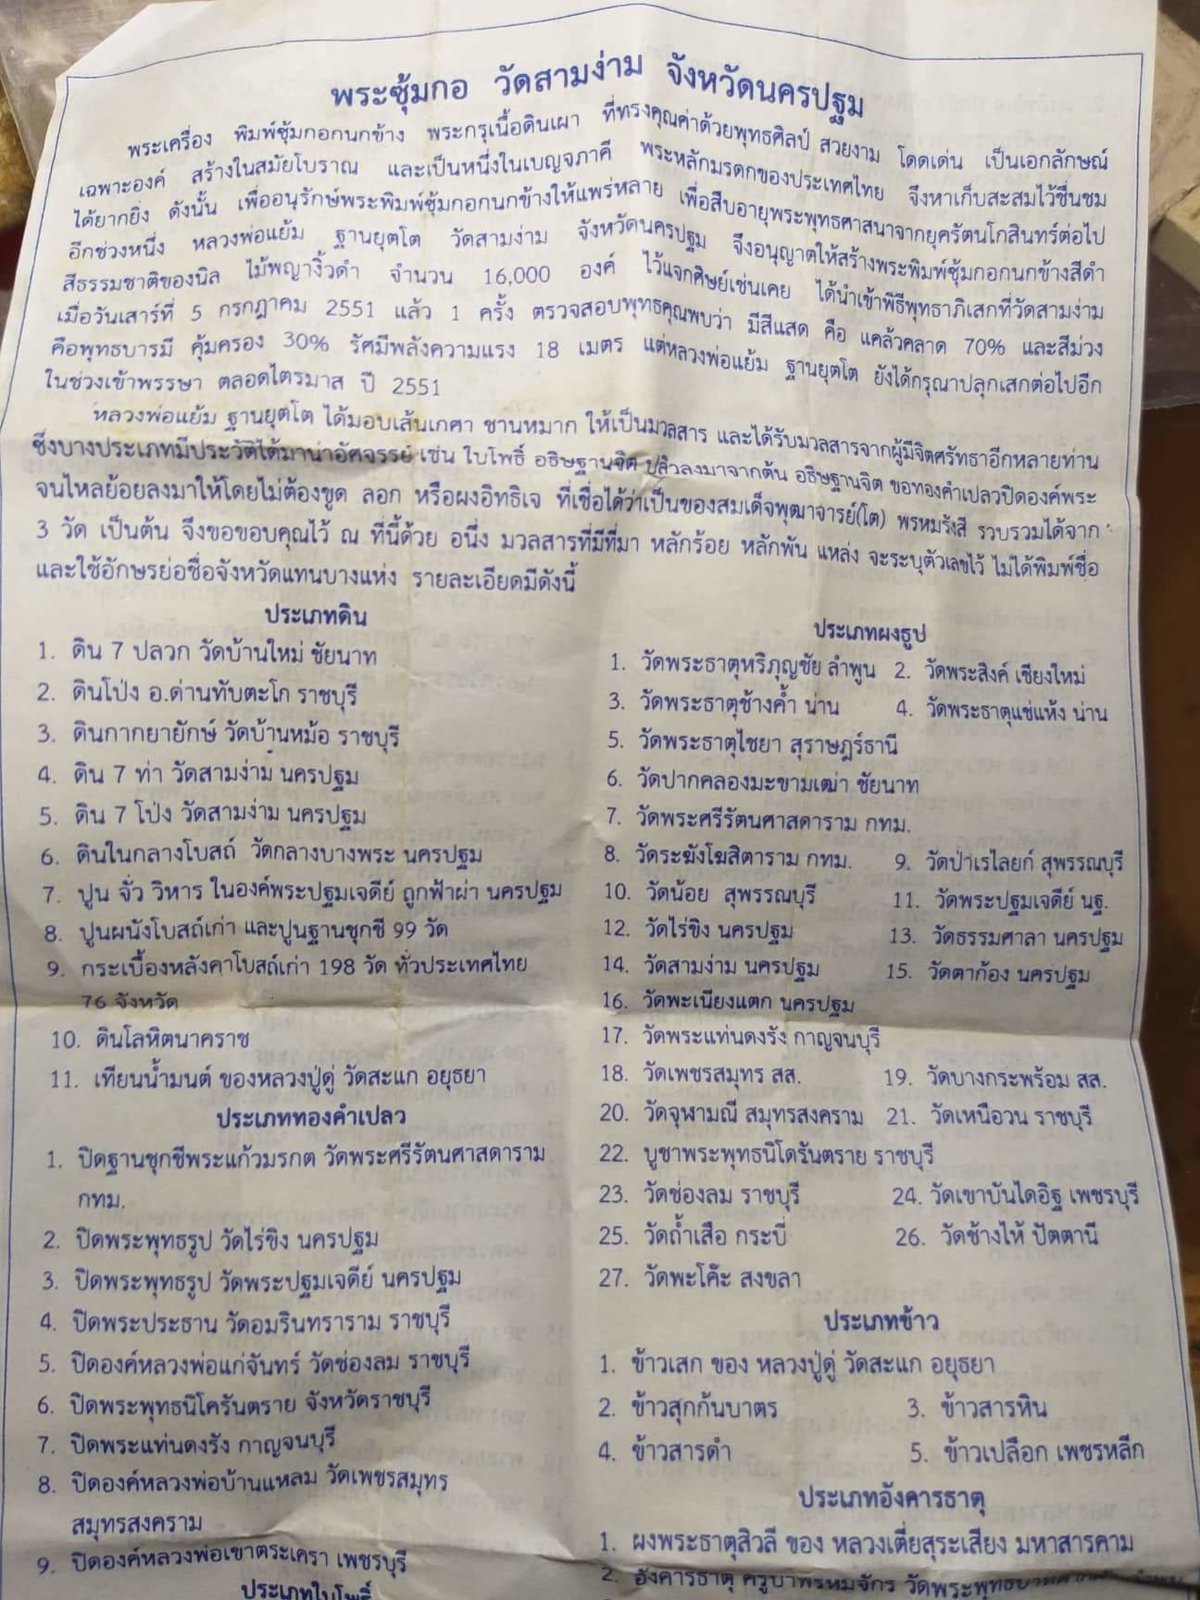 พระซุ้มกอ วัดสามง่าม จังหวัดนครปฐม
พระเครื่อง พิมพ์ซุ้มกอกนกข้าง พระกรุเนื้อดินเผา ที่ทรงคุณค่าด้วยพุทธศิลป์ สวยงาม โดดเด่น เป็นเอกลักษณ์
เฉพาะองค์ สร้างในสมัยโบราณ และเป็นหนึ่งในเบญจภาคี พระหลักมรดกของประเทศไทย จึงหาเก็บสะสมไว้ชื่นชม
ได้ยากยิ่ง ดังนั้น เพื่ออนุรักษ์พระพิมพ์ซุ้มกอกนกข้างให้แพร่หลาย เพื่อสืบอายุพระพุทธศาสนาจากยุครัตนโกสินทร์ต่อไป
อีกช่วงหนึ่ง หลวงพ่อแย้ม ฐานยุตโต วัดสามง่าม จังหวัดนครปฐม จึงอนุญาตให้สร้างพระพิมพ์ซุ้มกอกนกข้างสีดำ
สีธรรมชาติของนิล ไม้พญางิ้วดำ จำนวน 16,000 องค์ ไว้แจกศิษย์เช่นเคย ได้นำเข้าพิธีพุทธาภิเสกที่วัดสามง่าม
เมื่อวันเสาร์ที่ 5 กรกฎาคม 2551 แล้ว 1 ครั้ง ตรวจสอบพุทธคุณพบว่า มีสีแสด คือ แคล้วคลาด 70% และสีม่วง
คือพุทธบารมี คุ้มครอง 30% รัศมีพลังความแรง 18 เมตร แต่หลวงพ่อแย้ม ฐานยุตโต ยังได้กรุณาปลุกเสกต่อไปอีก
ในช่วงเข้าพรรษา ตลอดไตรมาส ปี 2551
หลวงพ่อแย้ม ฐานยุตโต ได้มอบเส้นเกศา ชานหมาก ให้เป็นมวลสาร และได้รับมวลสารจากผู้มีจิตศรัทธาอีกหลายท่าน
ซึ่งบางประเภทมีประวัติได้มาน่าอัศจรรย์ เช่น ใบโพธิ์ อธิษฐานจิต ปลิวลงมาจากต้น อธิษฐานจิต ขอทองคำเปลวปิดองค์พระ
จนไหลย้อยลงมาให้โดยไม่ต้องขูด ลอก หรือผงอิทธิเจ ที่เชื่อได้ว่าเป็นของสมเด็จพุฒาจารย์(โต) พรหมรังสี รวบรวมได้จาก
3 วัด เป็นต้น จึงขอขอบคุณไว้ ณ ที่นี้ด้วย อนึ่ง มวลสารที่มีที่มา หลักร้อย หลักพัน แหล่ง จะระบุตัวเลขไว้ ไม่ได้พิมพ์ชื่อ
และใช้อักษรย่อชื่อจังหวัดแทนบางแห่ง รายละเอียดมีดังนี้
ประเภทดิน
1. ดิน 7 ปลวก วัดบ้านใหม่ ชัยนาท
2. ดินโป่ง อ.ด่านทับตะโก ราชบุรี
3. ดินกากยายักษ์ วัดบ้านหม้อ ราชบุรี
4. ดิน 7 ท่า วัดสามง่าม นครปฐม
5. ดิน 7 โป่ง วัดสามง่าม นครปฐม
6. ดินในกลางโบสถ์ วัดกลางบางพระ นครปฐม
7. ปูน จั่ว วิหาร ในองค์พระปฐมเจดีย์ ถูกฟ้าผ่า นครปฐม
8. ปูนผนังโบสถ์เก่า และปูนฐานชุกชี 99 วัด
9. กระเบื้องหลังคาโบสถ์เก่า 198 วัด ทั่วประเทศไทย
76 จังหวัด
10. ดินโลหิตนาคราช
11. เทียนน้ำมนต์ ของหลวงปู่ดู่ วัดสะแก อยุธยา
ประเภททองคำเปลว
1. ปิดฐานชุกชีพระแก้วมรกต วัดพระศรีรัตนศาสดาราม
กทม.
2. ปิดพระพุทธรูป วัดไร่ขิง นครปฐม
3. ปิดพระพุทธรูป วัดพระปฐมเจดีย์ นครปฐม
4. ปิดพระประธาน วัดอมรินทราราม ราชบุรี
5. ปิดองค์หลวงพ่อแก่จันทร์ วัดช่องลม ราชบุรี
6. ปิดพระพุทธนิโครันตราย จังหวัดราชบุรี
7. ปิดพระแท่นดงรัง กาญจนบุรี
8. ปิดองค์หลวงพ่อบ้านแหลม วัดเพชรสมุทร
สมุทรสงคราม
9. ปิดองค์หลวงพ่อเขาตะเครา เพชรบุรี
ประเภทใบโพธิ์
ประเภทผงธูป
1. วัดพระธาตุหริภุญชัย ลำพูน 2. วัดพระสิงค์ เชียงใหม่
3. วัดพระธาตุช้างค้ำ น่าน 4. วัดพระธาตุแช่แห้ง น่าน
5. วัดพระธาตุไชยา สุราษฎร์ธานี
6. วัดปากคลองมะขามเฒ่า ชัยนาท
7. วัดพระศรีรัตนศาสดาราม กทม.
8. วัดระฆังโฆสิตาราม กทม. 9. วัดป่าเรไลยก์ สุพรรณบุรี
10. วัดน้อย สุพรรณบุรี 11. วัดพระปฐมเจดีย์ นฐ.
12. วัดไร่ขิง นครปฐม 13. วัดธรรมศาลา นครปฐม
14. วัดสามง่าม นครปฐม 15. วัดตาก้อง นครปฐม
16. วัดพะเนียงแตก นครปฐม
17. วัดพระแท่นดงรัง กาญจนบุรี
18. วัดเพชรสมุทร สส. 19. วัดบางกระพร้อม สส.
20. วัดจุฬามณี สมุทรสงคราม 21. วัดเหนือวน ราชบุรี
22. บูชาพระพุทธนิโครันตราย ราชบุรี
23. วัดช่องลม ราชบุรี 24. วัดเขาบันไดอิฐ เพชรบุรี
25. วัดถ้ำเสือ กระบี่ 26. วัดช้างไห้ ปัตตานี
27. วัดพะโค๊ะ สงขลา
ประเภทข้าว
1. ข้าวเสก ของ หลวงปู่ดู่ วัดสะแก อยุธยา
2. ข้าวสุกก้นบาตร 3. ข้าวสารหิน
4. ข้าวสารดำ 5. ข้าวเปลือก เพชรหลีก
ประเภทอังคารธาตุ
1. ผงพระธาตุสิวลี ของ หลวงเตี่ยสุระเสียง มหาสารคาม
2. อังคารธาตุ ครูบาพรหมจักร